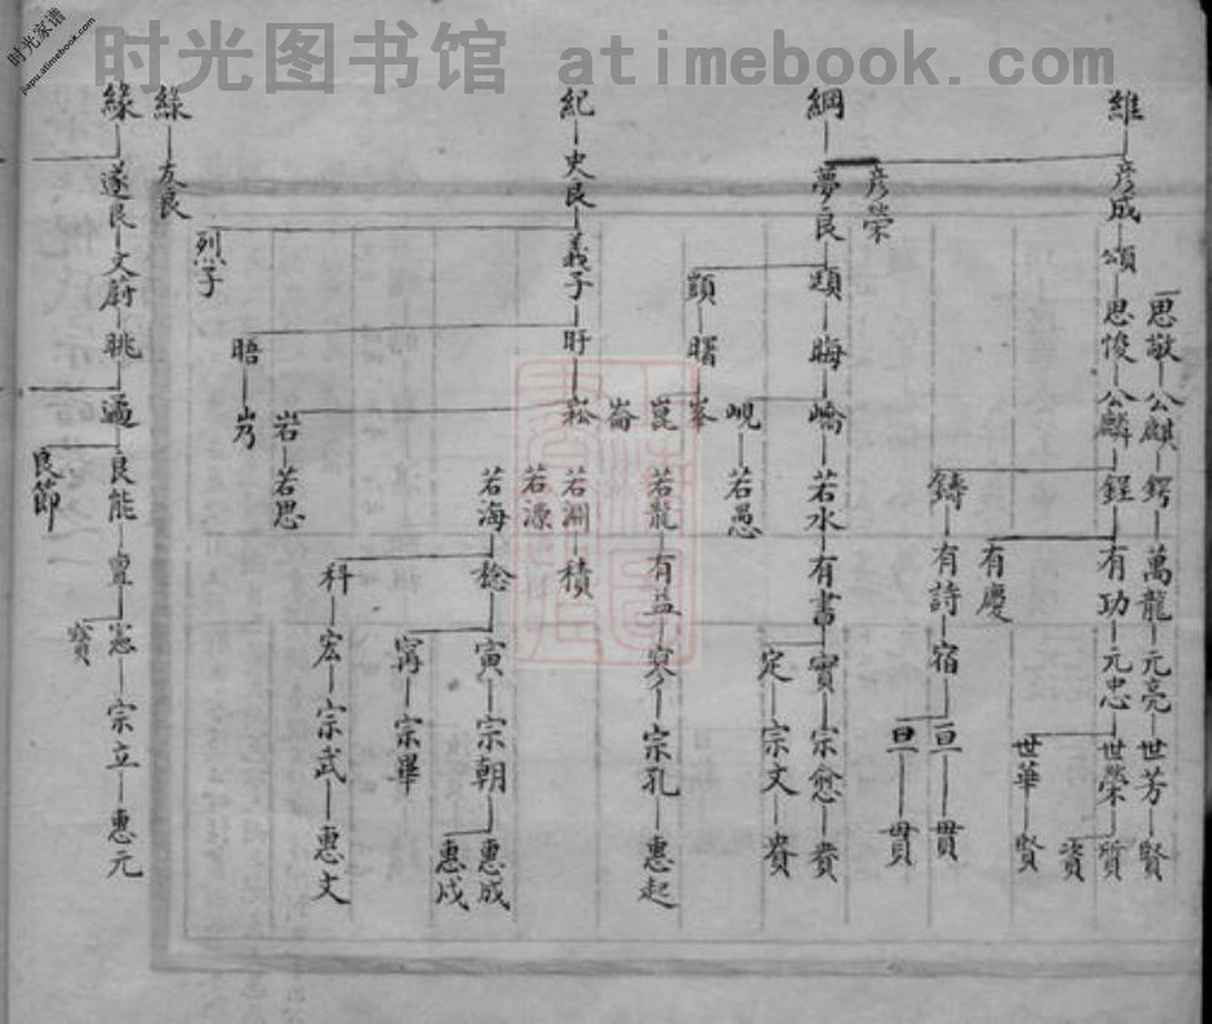 时光图书馆 atimebook.com
时光家谱
jiapu.atimebook.com
思敬 公麒 鍔 萬龍 元亮 世芳 賢
維 彦成 頌 思俊 公麟 鋥 有功 元忠 世榮 質
資
世華 賢
有慶
鑄 有詩 宿 亘 貫
旦 貫
彦榮
綱 夢良 頲 晦 嶠 若水 有書 實 宗愈 賚
定 宗文 賚
峴 若愚
顗 曙 峯
崑 若龍 有益 宗孔 惠起
崙
紀 史良 義子 旰 崧 若淵 積
若源
若海 稔 寅 宗朝 惠成
惠戍
寗 宗畢
科 宏 宗武 惠文
岩 若思
晤
烈子
綠 友良
緣 遂良 文蔚 晀 遹 良能 亶 憲 宗立 惠元
寶
良節